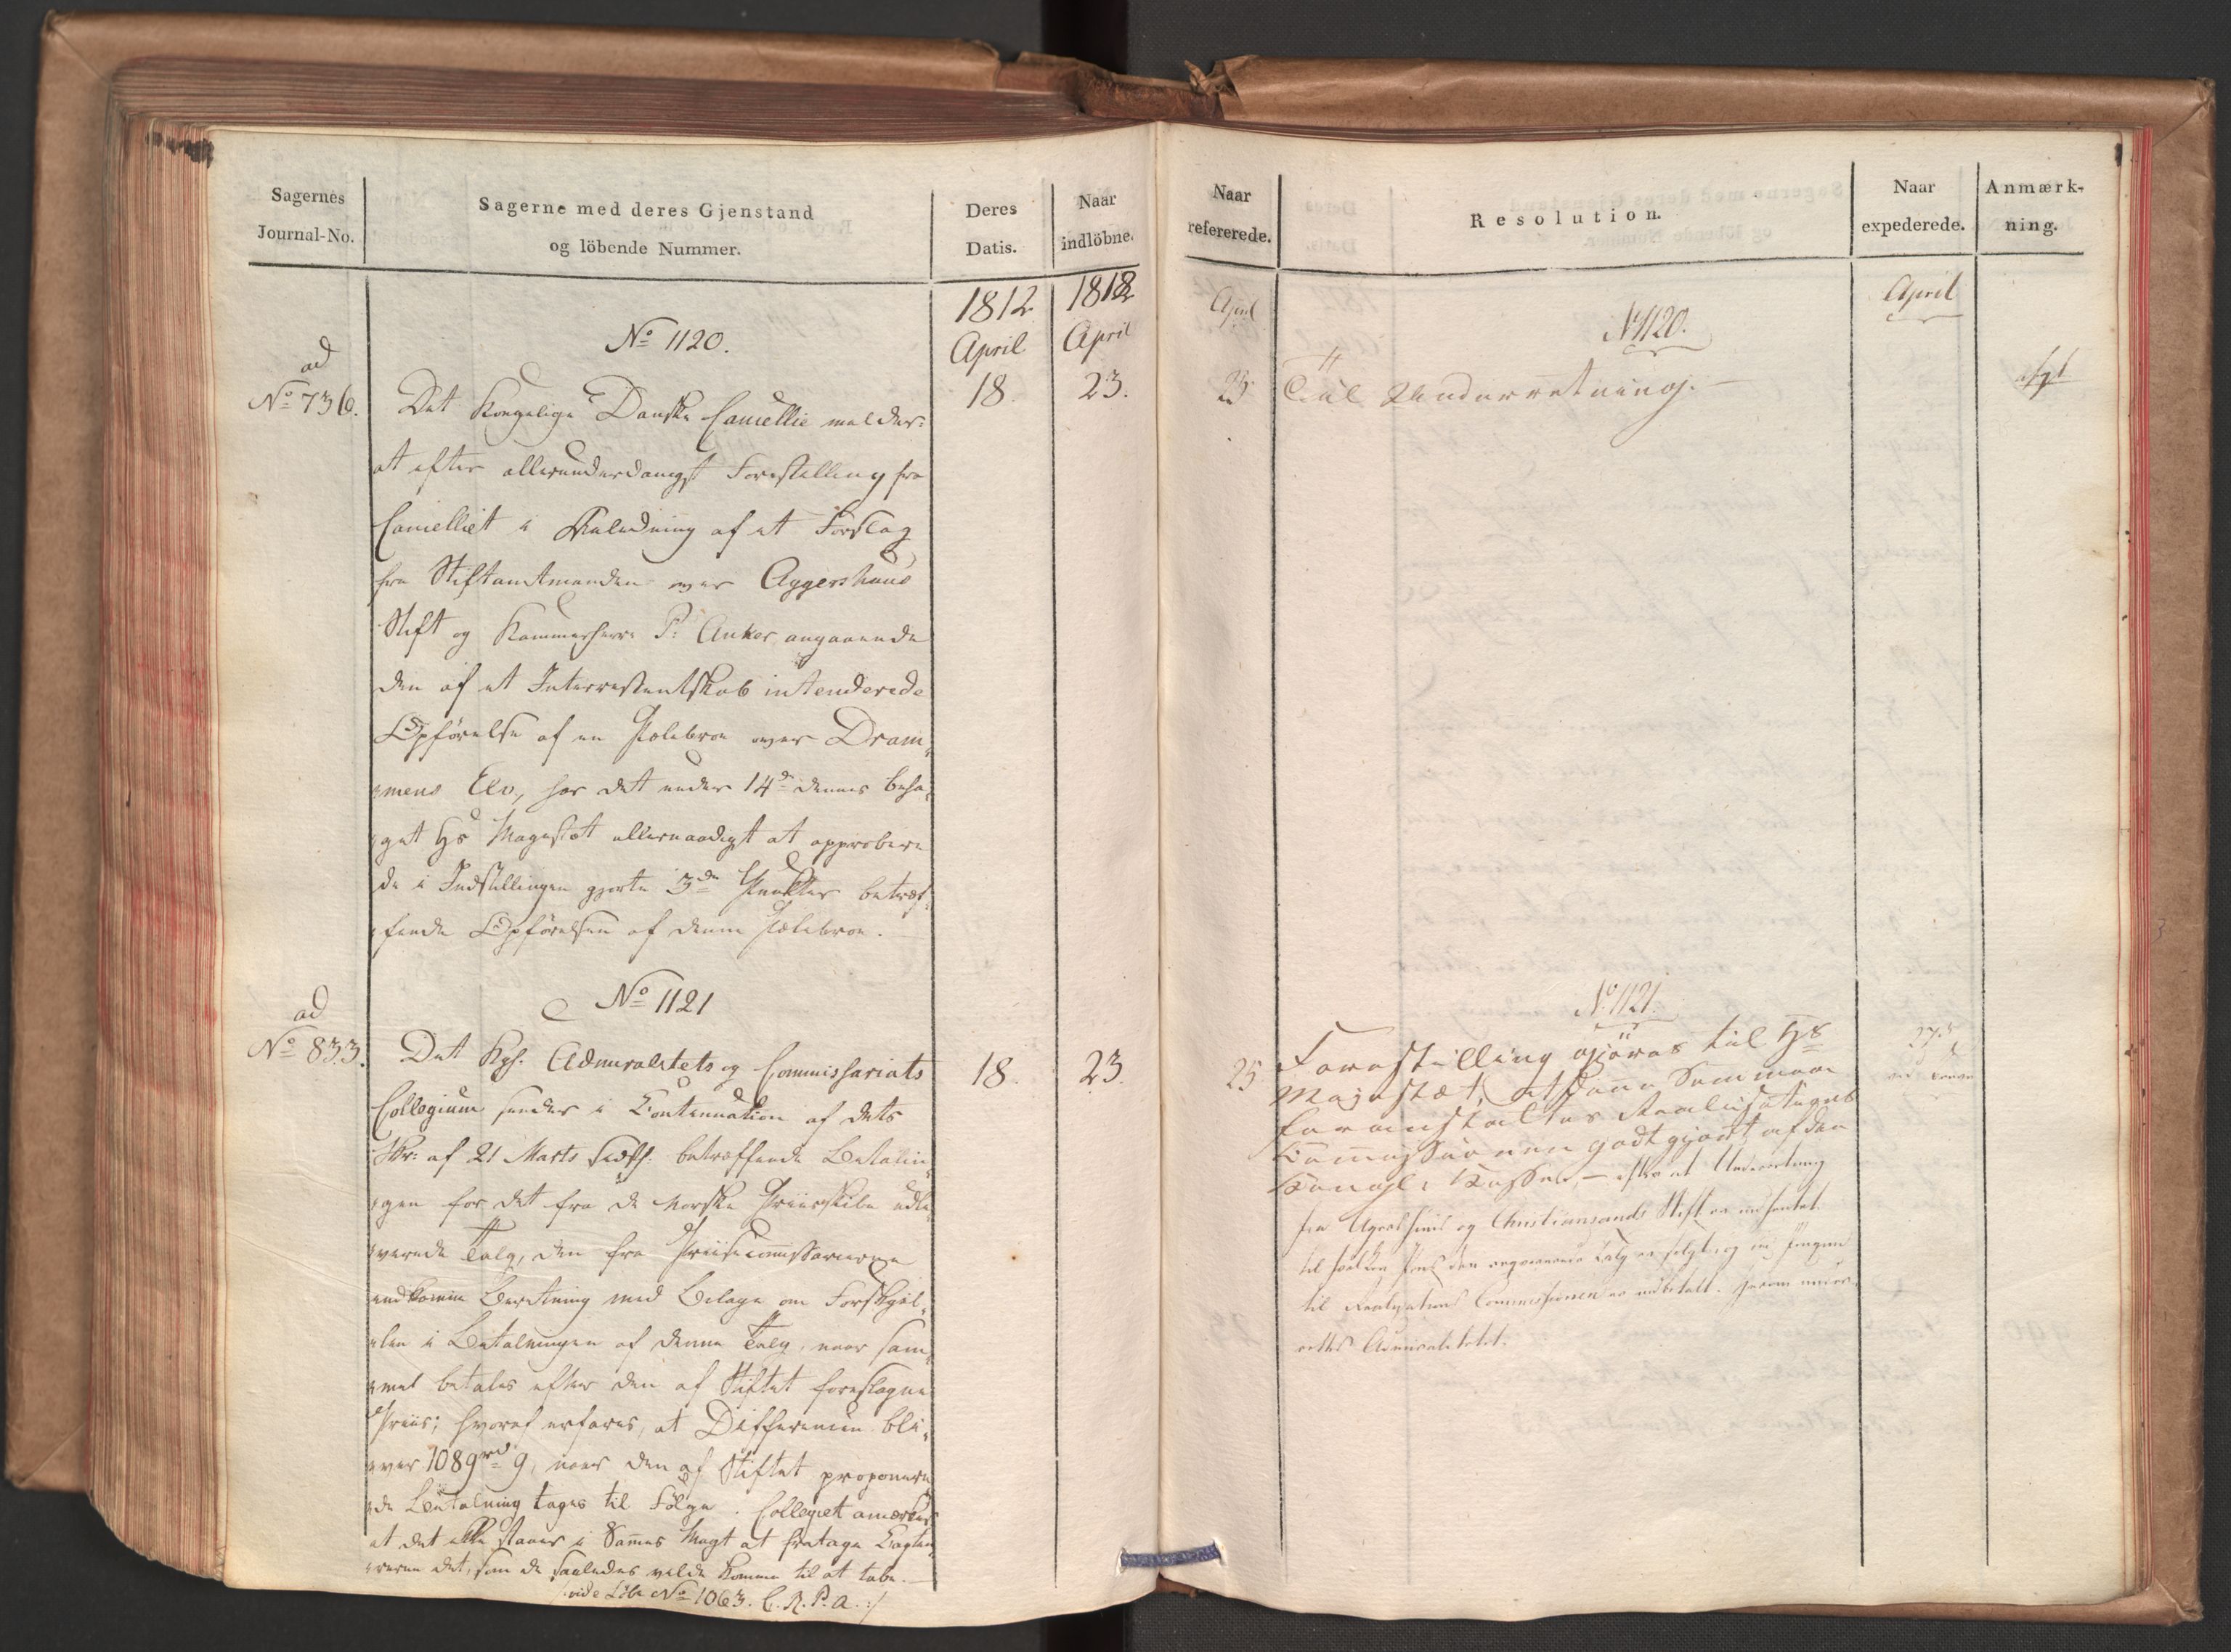 Sagernes
Journal-No.
Sagerne med deres Gjenstand
og löbende Nummer.
Deres
Datis.
Naar
indlöbne.
1812
April
1812
April
No 1120.
ad
No 736.
18.
23.
Det Kongelige Danske Cancellie melder:
at efter allerunderdanigst Forestilling fra
Cancelliet i Anledning af et Forslag
fra Stiftamtmanden over Aggershuus
Stift og Kammerherre P: Anker angaaende
den af et Interressentskab intenderede
Opförelse af en Pælebroe over Dram-
mens Elv, har det under 14de dennes beha-
get Hs Majestæt allernaadigst at approbere
de i Indstillingen gjorte 3de Punkter betræf-
fende Opförelsen af denne Pælebroe.
No 1121
ad
No 833.
18.
23.
Det Kgl. Admiralitets og Commissariats
Collegium sender i Continuation af dets
Skr: af 21 Marts sidstl. betreffende Betalin-
gen for det fra de Norske Priseskibe udle-
verede Talg, den fra Priisecommissairerne
indkomne Beretning med Bilage om Forskjel-
len i Betalningen af denne Talg, naar sam-
met betales efter den af Stiftet foreslagne
Priis; hvoraf erfares, at Differencen bli-
ver 1089 rd 9, naar den af Stiftet proponere-
de Betalning tages til Fölge. Collegiet anmærker
at det ikke staaer i Sammes Magt at fratage Capten-
rerne det, som de saaledes vilde komme til at tabe.
/: vide Löbe No 1063. C. R. P. A. :/
Naar
refererede.
Resolution.
Naar
expederede.
Anmærk-
ning.
April
April
No 1120.
25
Til Underretning. —
afgl
No 1121.
25
27
Forestilling gjöres til Hs
Majestæt, at denne Summa
foranstaltes Realisations
Commissionen godtgjort af den
Kongl. Kasse, — efter at Underretning
fra Agershuus og Christiansands Stift er indhentet
til hvilken Priis den ommeldte Talg er solgt, og om Pengene
til Realisations Commissionen er indbetalt. Herom under-
rettes Admiralitetet.